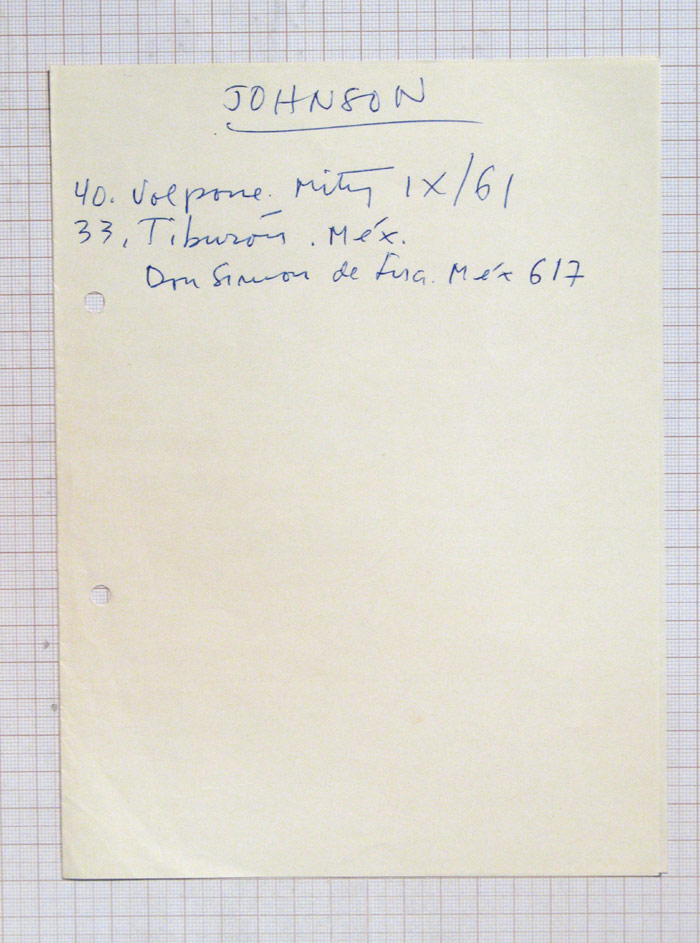 JOHNSON
40. Volpone. IX/61
33, Tiburón. Méx.
Don Simon de Lira. Méx 617